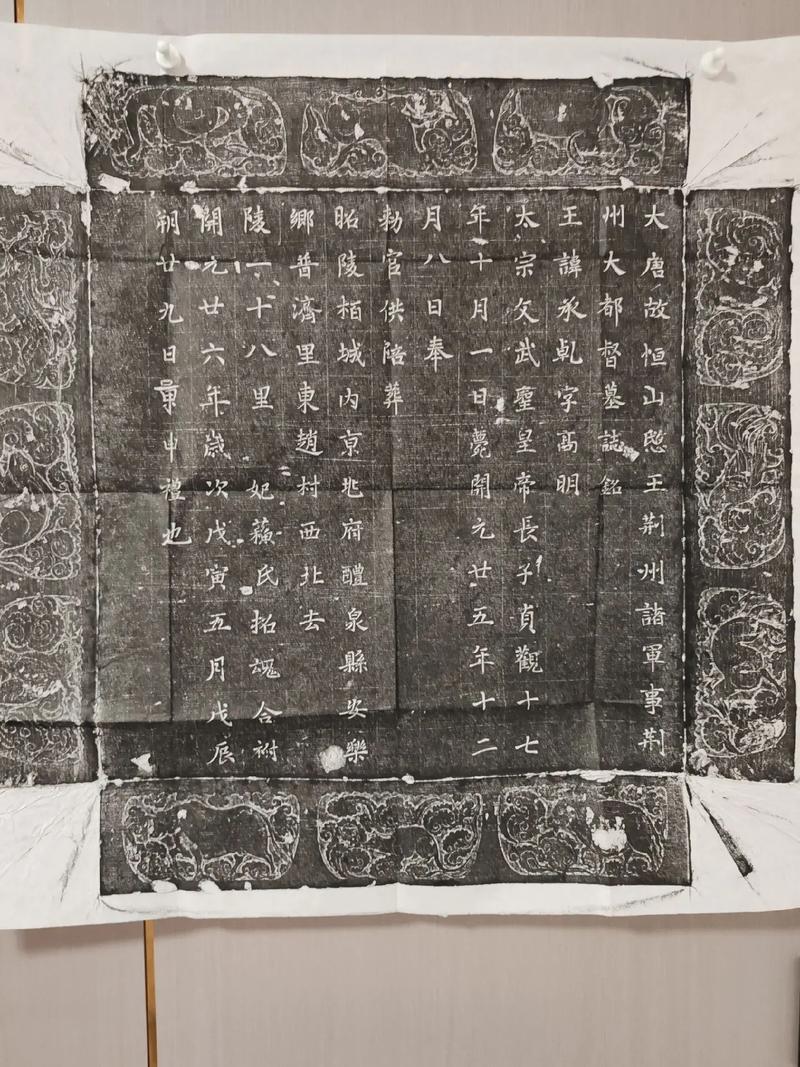 大唐故恒山愍王荊州諸軍事荊
州大都督墓誌銘
王諱承乹字高明
太宗文武聖皇帝長子貞觀十七
年十月一日薨開元廿五年十二
月八日奉
勑官供陪葬
昭陵栢城內京兆府醴泉縣安樂
鄉普濟里東趙村西北去
陵一十八里 妃蘓氏招魂合祔
開元廿六年歲次戊寅五月戊辰
朔廿九日景申禮也